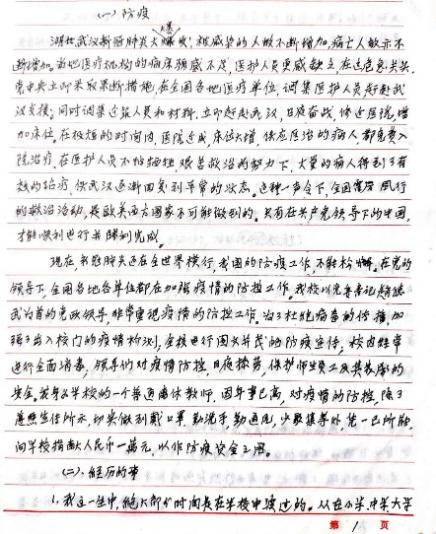 (一)防疫
大
湖北武汉新冠肺炎大爆发,被感染的人数不断增加,病亡人数亦不
断增加。当地医疗机构的病床顿感不足,医护人员更感缺乏,在这危急关头,
党中央立即采取果断措施,在全国各地医疗单位,调集医护人员赶赴武
汉支援;同时调集过益人员和材料,立即赶赴武汉,日夜奋战,修建医院,增
加床位。在极短的时间内,医院建成,床位大增,供应医治的病人,都免费入
院治疗,在医护人员不怕牺牲,艰苦救治的努力下,大量的病人得到了有
效的治疗,使武汉逐渐回复到平常的状态。这种一声令下,全国 风行
的救治活动,是欧美西方国家不可能做到的。只有在共产党领导下的中国,
才能顺利进行并胜利完成。
现在,新冠肺炎还在全世界横行,我国的防疫工作,不能松懈。在党的
领导下,全国各地各单位都在加强疫情的防控工作。我校以党委书记
为首的党政领导,非常重视疫情的防控工作。为了杜绝病毒的传播,加
强了出入校门的疫情检测,全校进行图文并茂的防疫宣传,校内经常
进行全面消毒,领导们对疫情防控,日夜操劳,保护师生员工及其家属的
安全。我身为学校的一个普通离休教师,因年事已高,对疫情的防控,除了
遵照宣传所示,切实做到戴口罩,勤洗手,勤通风,少聚集等外,凭一己所能,
向学校捐献人民币一万元,以作防疫资金之用。
(二)、经历的事
1、我这一生中,绝大部分时间是在学校中度过的。从在小学、中学、大学
第 1 页